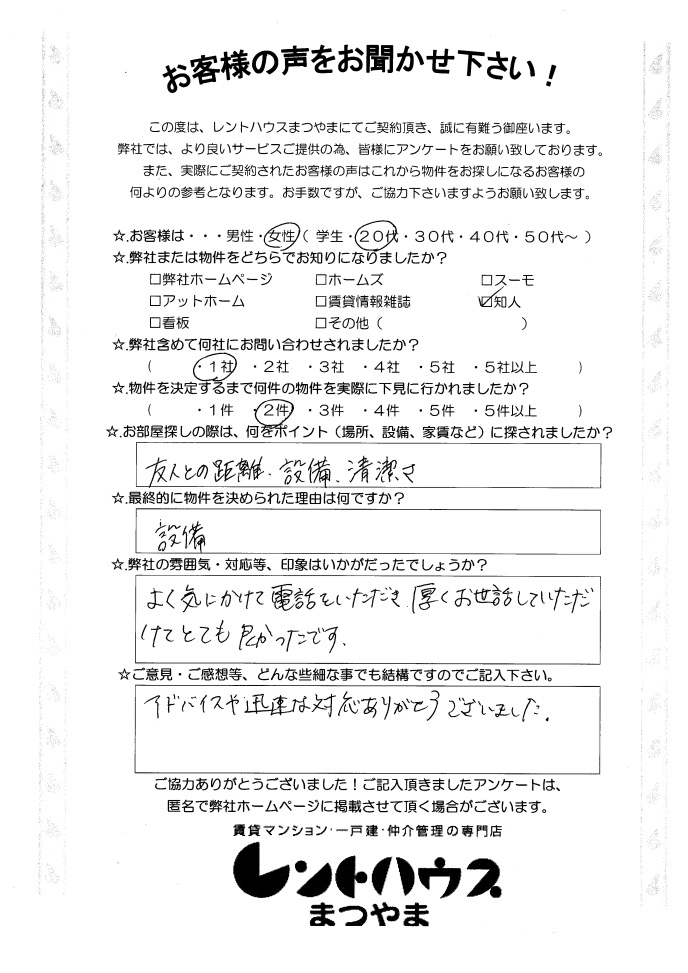 お客様の声をお聞かせ下さい！
この度は、レントハウスまつやまにてご契約頂き、誠に有難う御座います。
弊社では、より良いサービスご提供の為、皆様にアンケートをお願い致しております。
また、実際にご契約されたお客様の声はこれから物件をお探しになるお客様の
何よりの参考となります。お手数ですが、ご協力下さいますようお願い致します。
☆.お客様は・・・男性・女性（ 学生・２０代・３０代・４０代・５０代～ ）
☆.弊社または物件をどちらでお知りになりましたか？
□弊社ホームページ □ホームズ □スーモ
□アットホーム □賃貸情報雑誌 ☑知人
□看板 □その他（ ）
☆.弊社含めて何社にお問い合わせされましたか？
（ ・１社 ・２社 ・３社 ・４社 ・５社 ・５社以上 ）
☆.物件を決定するまで何件の物件を実際に下見に行かれましたか？
（ ・１件 ・２件 ・３件 ・４件 ・５件 ・５件以上 ）
☆.お部屋探しの際は、何をポイント（場所、設備、家賃など）に探されましたか？
友人との距離、設備、清潔さ
☆.最終的に物件を決められた理由は何ですか？
設備
☆.弊社の雰囲気・対応等、印象はいかがだったでしょうか？
よく気にかけて電話をいただき、厚くお世話していただ
けてとても良かったです、
☆ご意見・ご感想等、どんな些細な事でも結構ですのでご記入下さい。
アドバイスや迅速な対応ありがとうございました。
ご協力ありがとうございました！ご記入頂きましたアンケートは、
匿名で弊社ホームページに掲載させて頂く場合がございます。
賃貸マンション・一戸建・仲介管理の専門店
レントハウス
まつやま